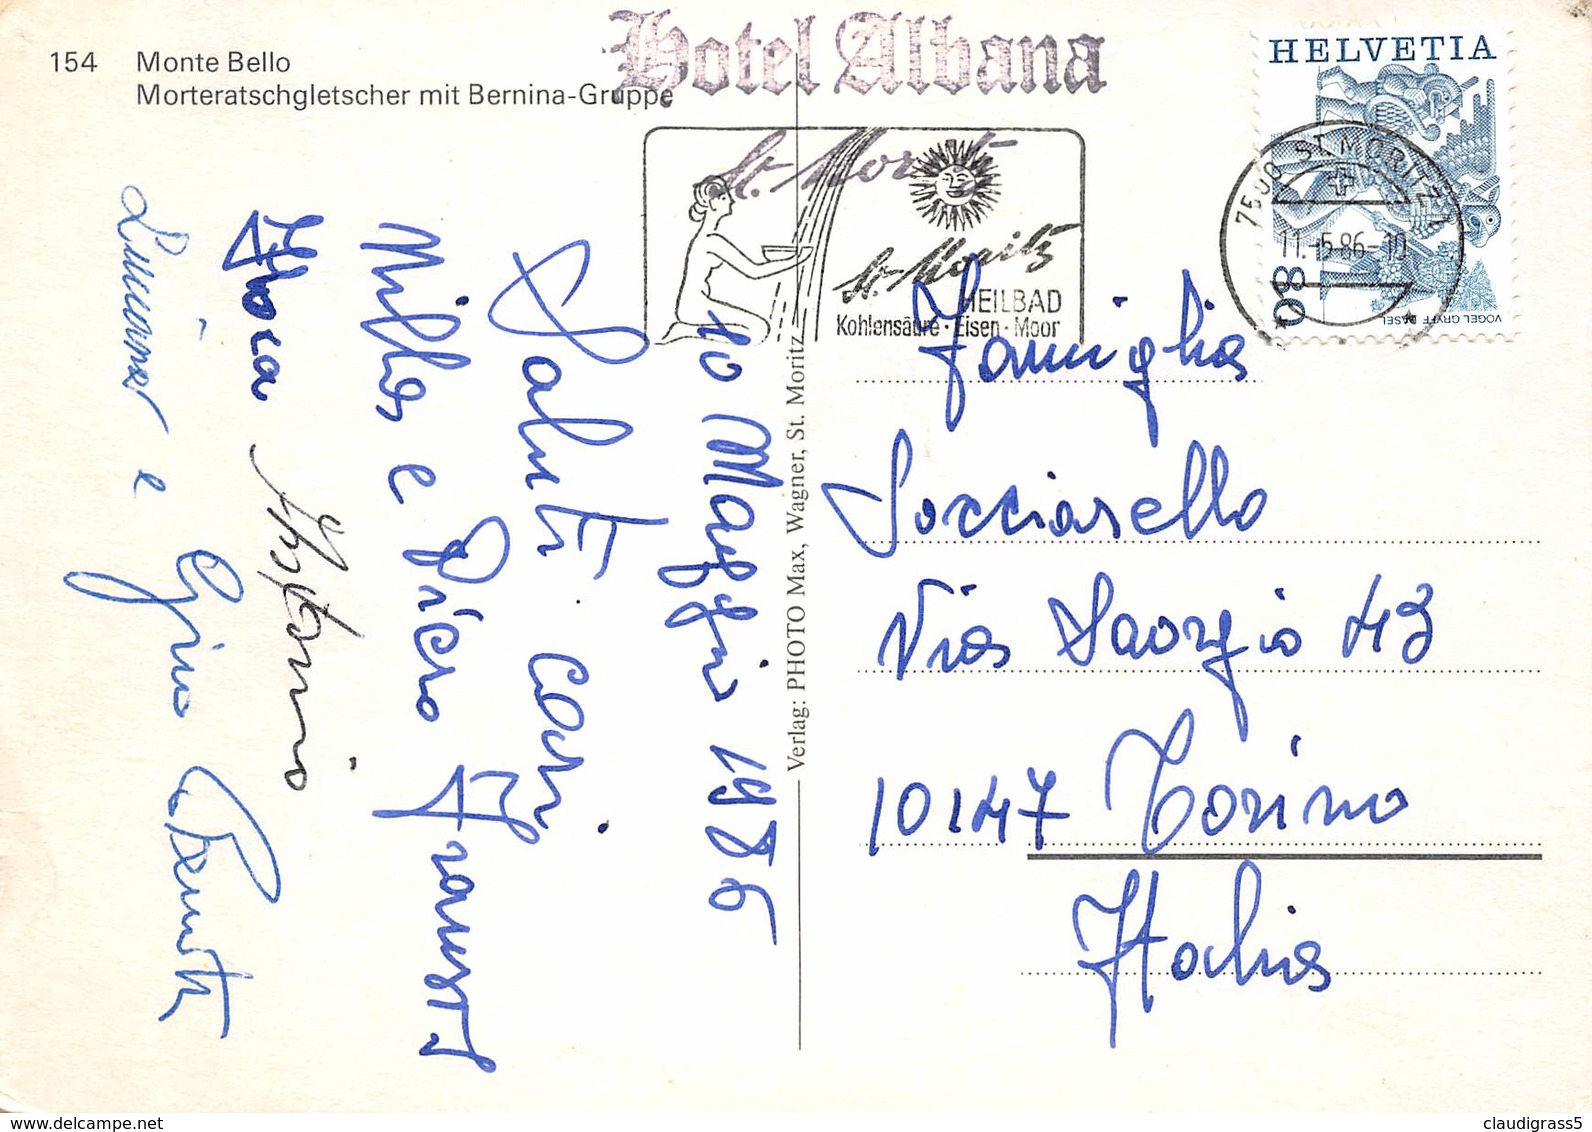 154 Monte Bello
Morteratschgletscher mit Bernina-Gruppe
Hotel Albana
St. Moritz
St. Moritz
HEILBAD
Kohlensäure · Eisen · Moor
HELVETIA
80
VOGEL GRYFF BASEL
7500 ST. MORITZ 1
11.-5.86-10
10 Maggio 1986
Saluti cari
Milla e Piero
e Gino
Verlag: PHOTO Max, Wagner, St. Moritz
Famiglia
Socciarello
Via Saorgio 43
10147 Torino
Italia
claudigrass5